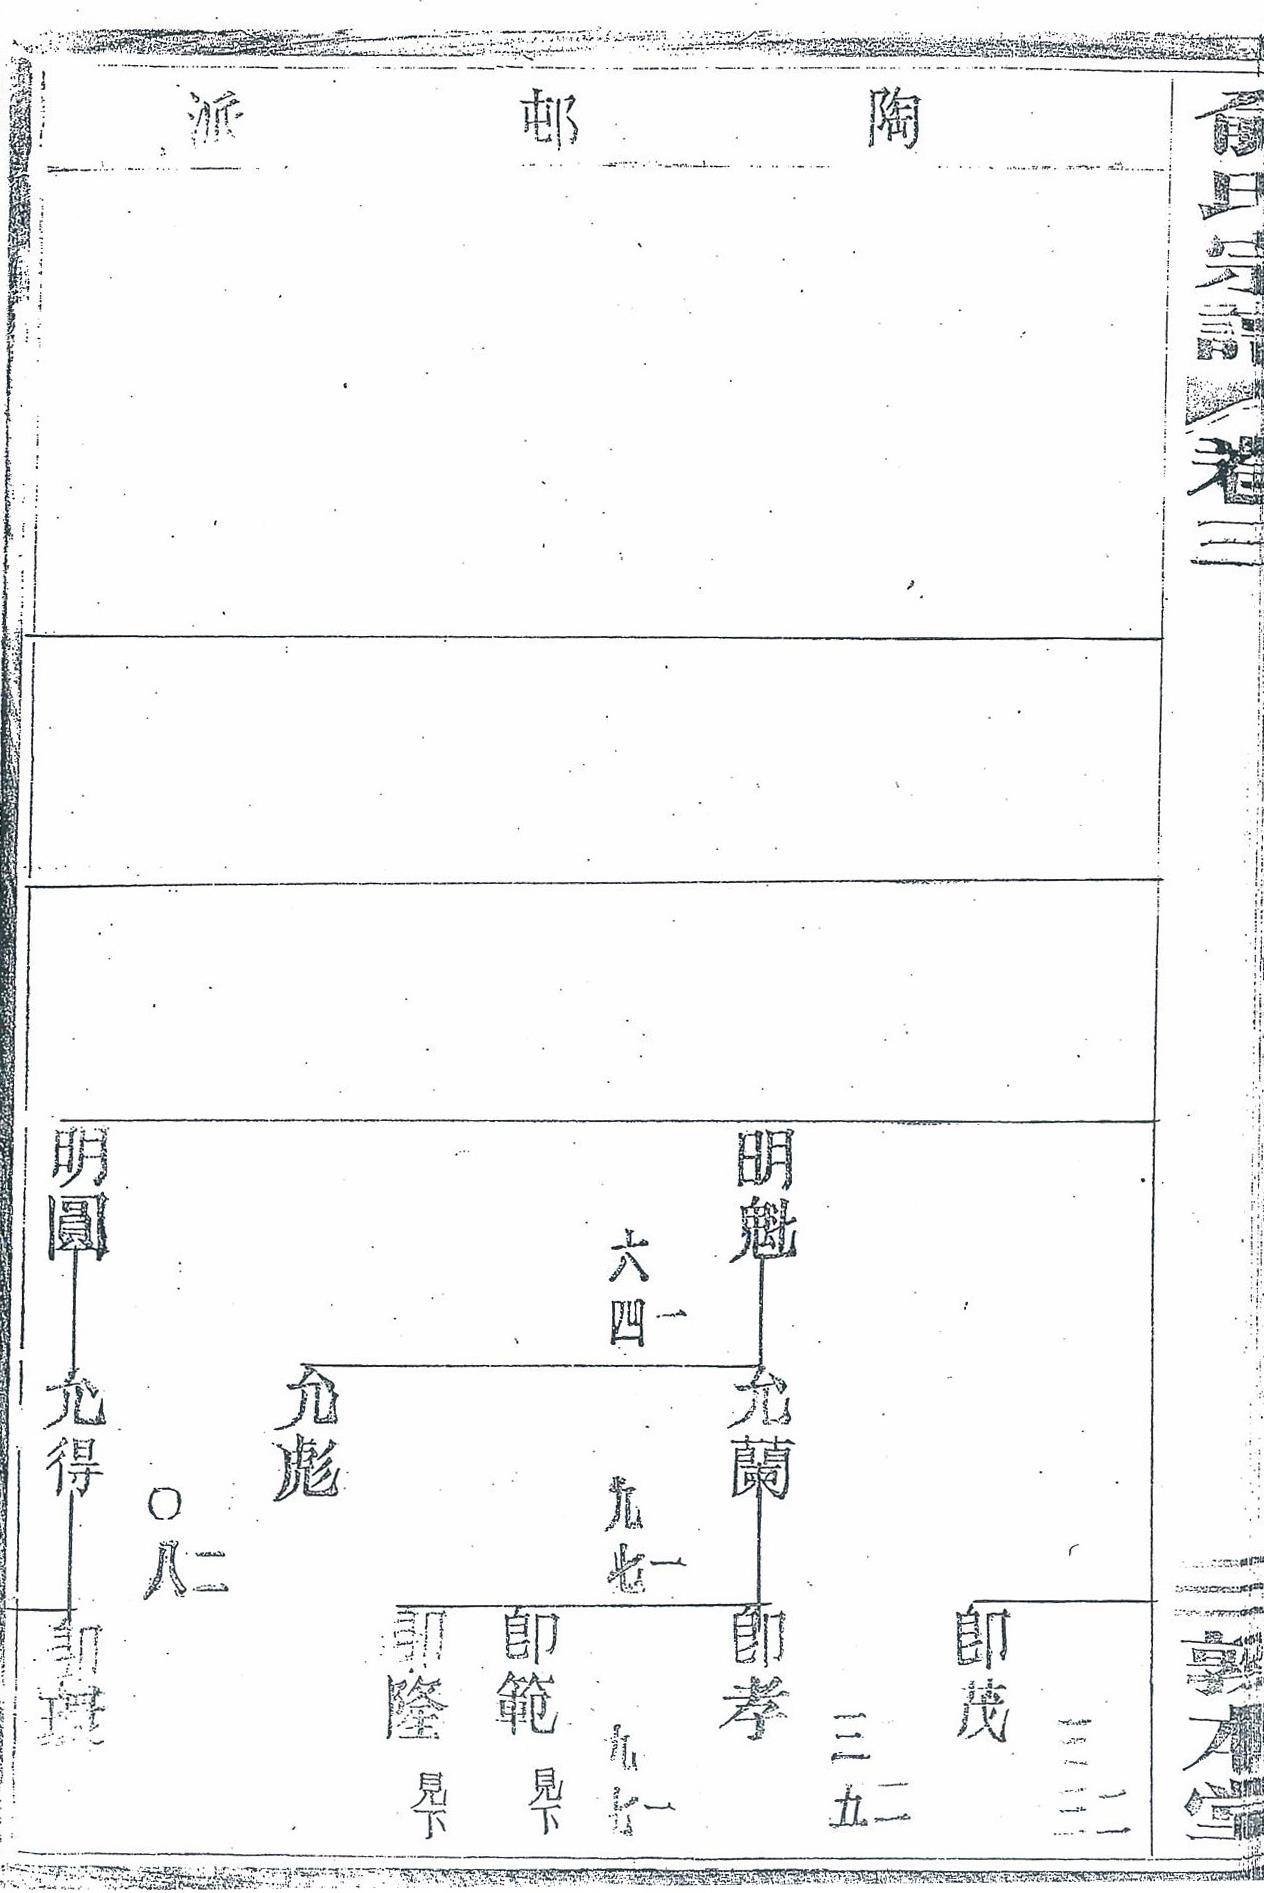 俞氏宗譜
卷三
三
敦本堂
陶邨派
明魁
一四六
明圓
允蘭
一七九
允彪
二八〇
允得
二三三
卽茂
二九三
卽孝
一七九
卽範 見下
卽隆 見下
卽